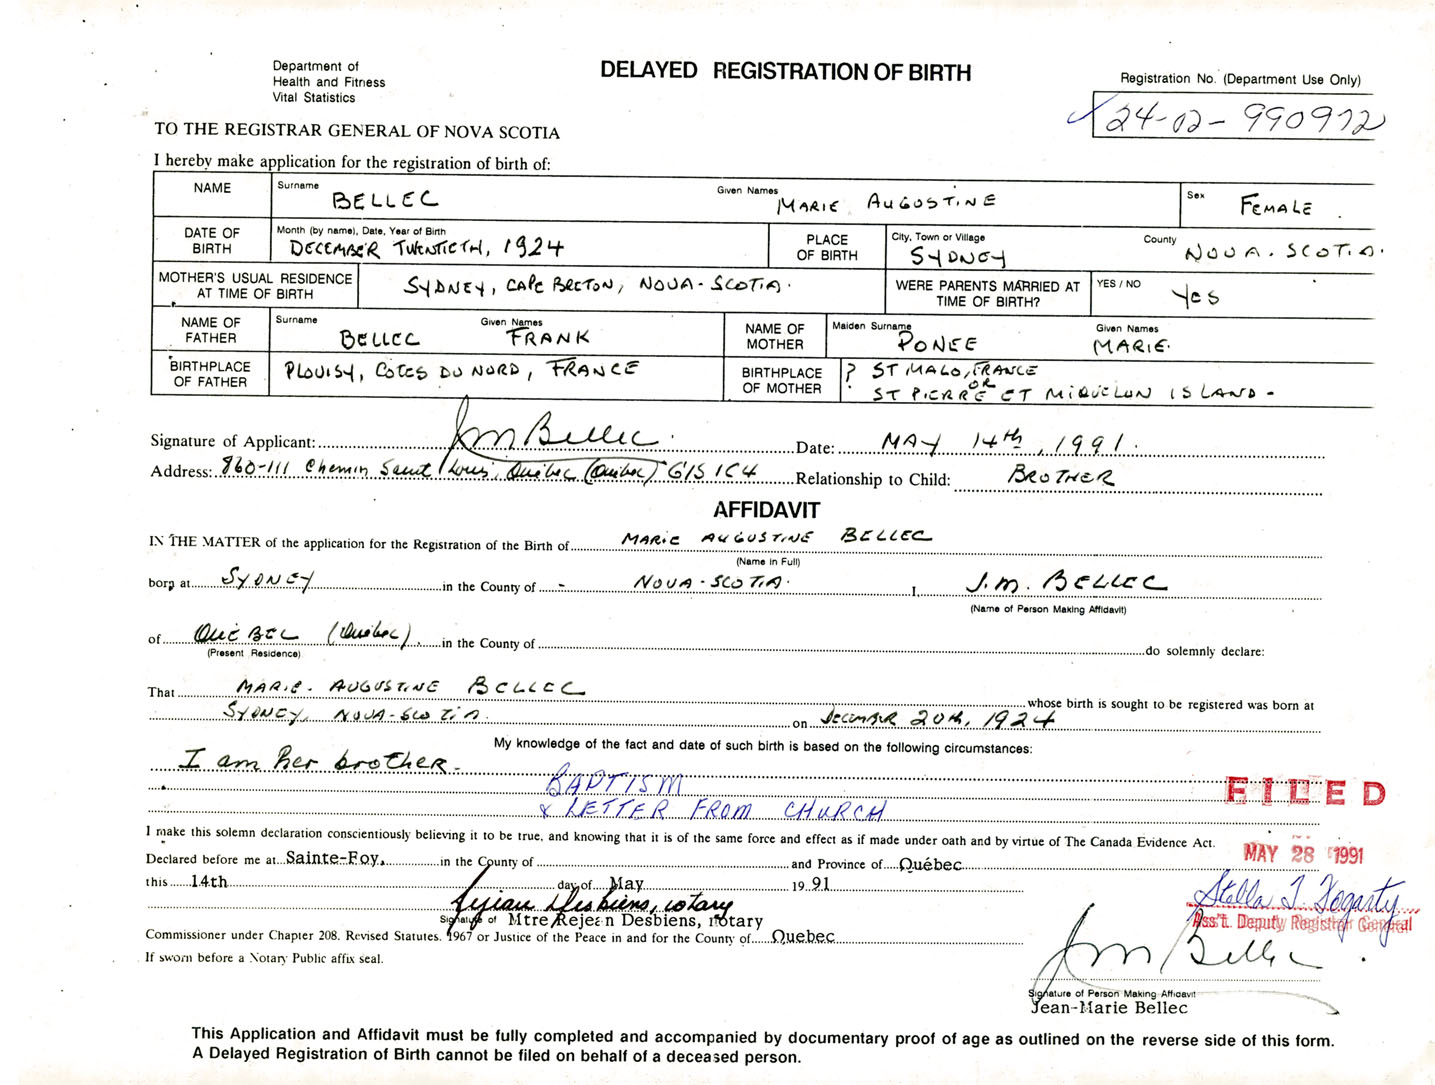 Department of
Health and Fitness
Vital Statistics
DELAYED REGISTRATION OF BIRTH
Registration No. (Department Use Only)
24-02-990972
TO THE REGISTRAR GENERAL OF NOVA SCOTIA
I hereby make application for the registration of birth of:
NAME Surname BELLEC Given Names MARIE AUGUSTINE Sex FEMALE
DATE OF BIRTH Month (by name), Date, Year of Birth DECEMBER TWENTIETH, 1924 PLACE OF BIRTH City, Town or Village SYDNEY County NOVA-SCOTIA.
MOTHER'S USUAL RESIDENCE AT TIME OF BIRTH SYDNEY, CAPE BRETON, NOVA-SCOTIA. WERE PARENTS MARRIED AT TIME OF BIRTH? YES / NO YES
NAME OF FATHER Surname BELLEC Given Names FRANK NAME OF MOTHER Maiden Surname PONEE Given Names MARIE.
BIRTHPLACE OF FATHER PLOUISY, COTES DU NORD, FRANCE BIRTHPLACE OF MOTHER ? ST MALO, FRANCE
OR
ST PIERRE ET MIQUELON ISLAND-
Signature of Applicant: JM Bellec. Date: MAY 14th, 1991.
Address: 860-111 Chemin Saint Louis, Québec (Québec) G1S 1C4 Relationship to Child: BROTHER
AFFIDAVIT
IN THE MATTER of the application for the Registration of the Birth of MARIE AUGUSTINE BELLEC
(Name in Full)
born at SYDNEY in the County of - NOVA-SCOTIA. I, J.M. BELLEC
(Name of Person Making Affidavit)
of QUÉBEC (Québec), in the County of do solemnly declare:
(Present Residence)
That MARIE. AUGUSTINE BELLEC whose birth is sought to be registered was born at
SYDNEY, NOVA-SCOTIA. on DECEMBER 20th, 1924
My knowledge of the fact and date of such birth is based on the following circumstances:
I am her brother-
BAPTISM
& LETTER FROM CHURCH
FILED
I make this solemn declaration conscientiously believing it to be true, and knowing that it is of the same force and effect as if made under oath and by virtue of The Canada Evidence Act.
MAY 28 1991
Declared before me at Sainte-Foy, in the County of and Province of Québec
this 14th day of May 19 91
Stella T. Fogarty
Ass't. Deputy Registrar General
Rejean Desbiens, notary
Signature of Mtre Rejean Desbiens, notary
Commissioner under Chapter 208. Revised Statutes. 1967 or Justice of the Peace in and for the County of Quebec
If sworn before a Notary Public affix seal.
JM Bellec.
Signature of Person Making Affidavit
Jean-Marie Bellec
This Application and Affidavit must be fully completed and accompanied by documentary proof of age as outlined on the reverse side of this form.
A Delayed Registration of Birth cannot be filed on behalf of a deceased person.